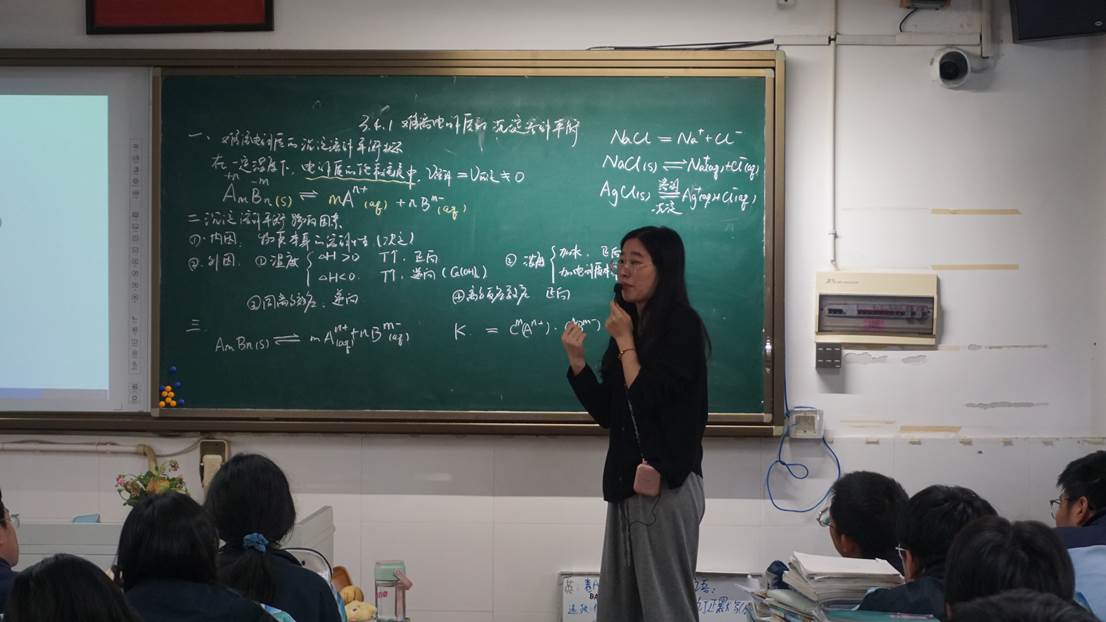 3.4.1 难溶电解质的沉淀溶解平衡
一、难溶电解质的沉淀溶解平衡
在一定温度下，电解质的饱和溶液中，V溶解=V沉淀≠0
+n -m
AmBn(s) ⇌ mAⁿ⁺(aq) + nBᵐ⁻(aq)
二 沉淀溶解平衡影响因素
①.内因：物质本身的（决定）
②.外因：①温度 { ΔH>0 T↑，正向
ΔH<0 T↑，逆向（Ca(OH)₂）
②浓度 { 加水，正向
③同离子效应：逆向
④离子反应效应 正向
三.
AmBn(s) ⇌ mAⁿ⁺(aq) + nBᵐ⁻(aq)
K = cᵐ(Aⁿ⁺)·
NaCl = Na⁺ + Cl⁻
NaCl(s) ⇌ Na⁺(aq) + Cl⁻(aq)
AgCl(s) 溶解⇌沉淀 Ag⁺(aq) + Cl⁻(aq)